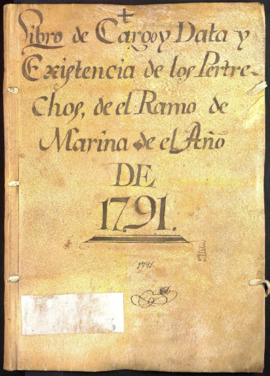 Libro de Cargo y Data y
Existencia de los Pertre-
chos, de el Ramo de
Marina de el Año
DE
1791.
1791